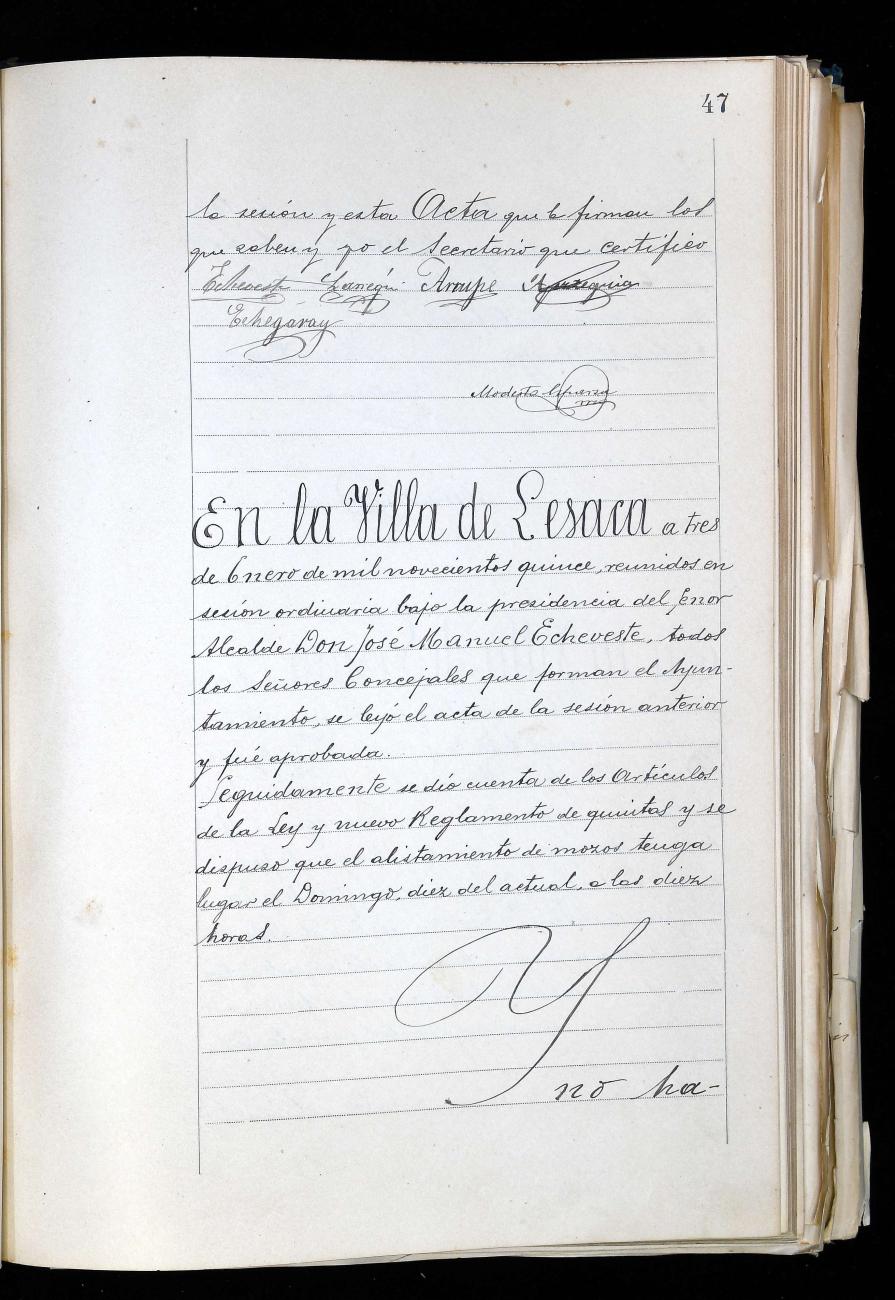 47
la sesión y esta Acta que la firman los
que saben y yo el Secretario que certifico
Echeveste Larregui Arrupe
Echegaray
Modesto
En la Villa de Lesaca a tres
de Enero de mil novecientos quince, reunidos en
sesión ordinaria bajo la presidencia del Señor
Alcalde Don José Manuel Echeveste, todos
los Señores Concejales que forman el Ayun-
tamiento, se leyó el acta de la sesión anterior
y fué aprobada.
Seguidamente se dió cuenta de los Artículos
de la Ley y nuevo Reglamento de quintas y se
dispuso que el alistamiento de mozos tenga
lugar el Domingo, diez del actual, a las diez
horas.
Y
no ha-